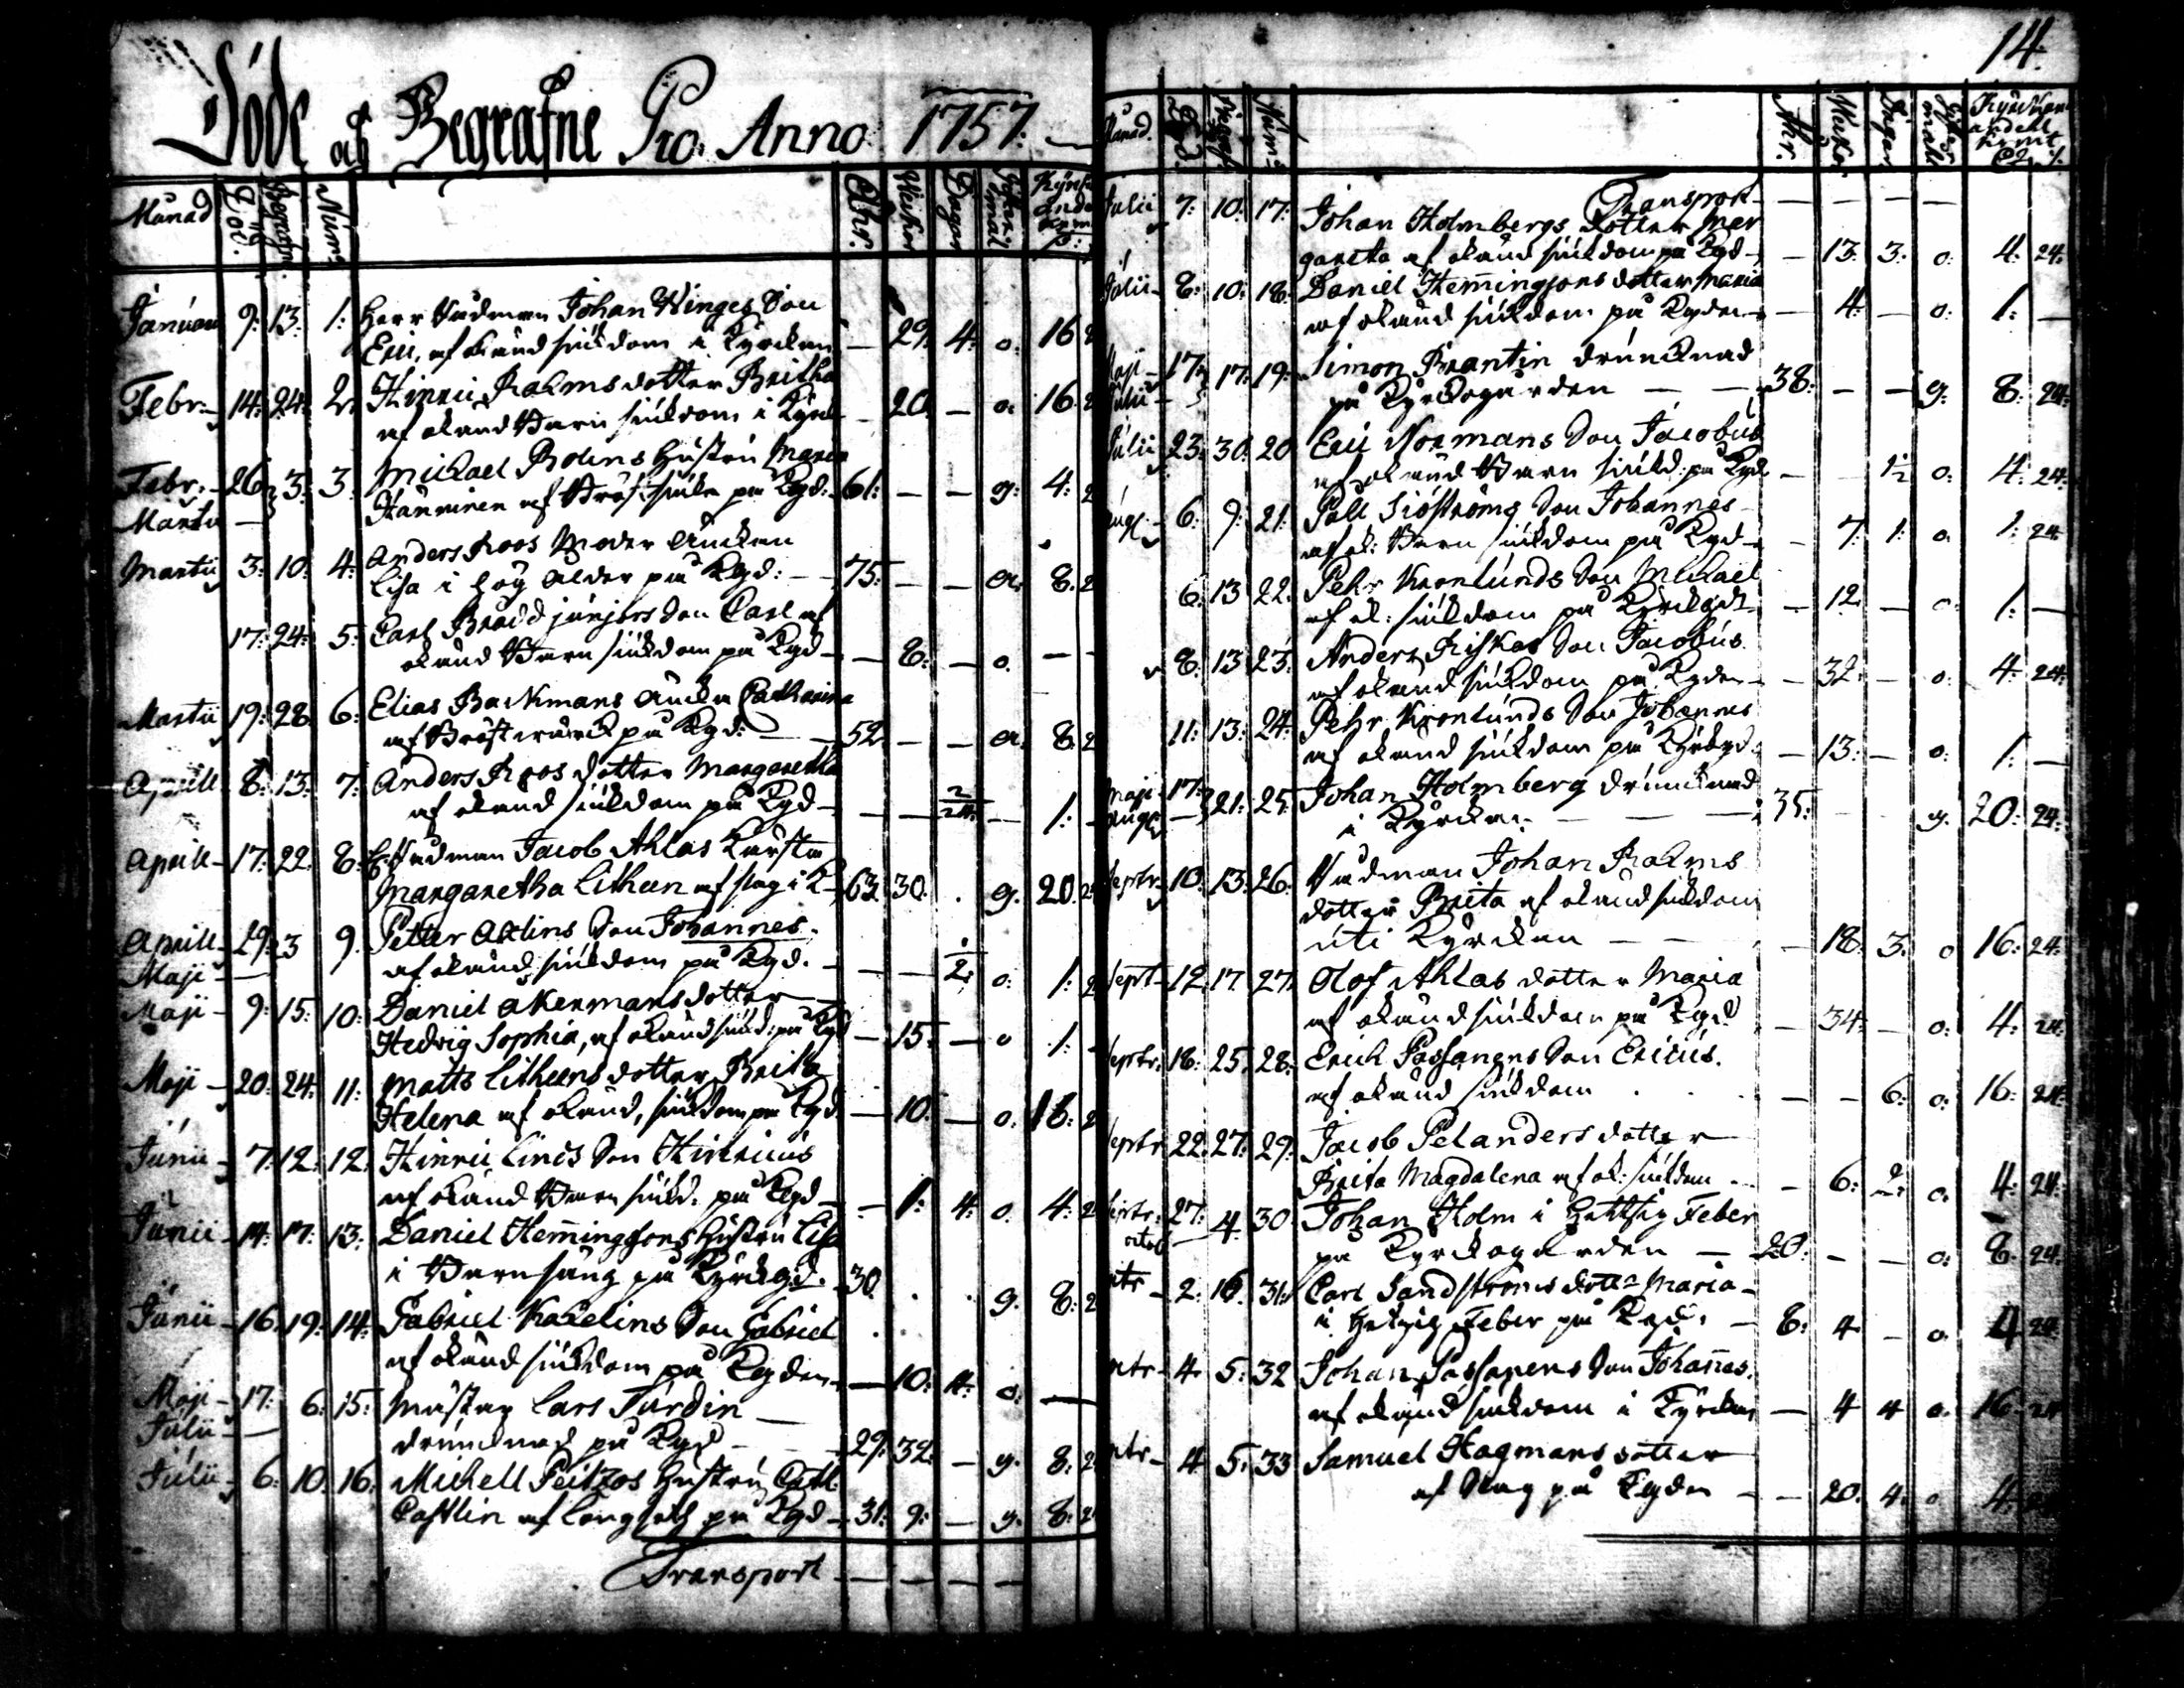 14.
Döde och Begrafne Pro Anno 1757.
Månad Död. Begrafn. Num. Åhr. Weckor Dagar
Januari 9: 13. 1: Herr Rådman Johan Winges Son
Eric, af okänd siukdom i Kyrckan — 29. 4. o. 16
Febr. 14: 24. 2. Hinric Rahms dotter Britha
af okänd Barn siukdom i Kyrck — 20. — o. 16.
Febr. 26 3. 3. Michael Rolins Hustru Maria
Martii — Hänninen af Bröstsiuka på Kgd: 61: — — g. 4.
Martii 3: 10. 4: Anders Roos Moder Änckan
Lisa i hög ålder på Kgd: — 75: — — e. 8.
17: 24: 5: Carl Brudd junjors Son Carl af
okänd Barn siukdom på Kgd — — 8: — o. —
Martii 19: 28. 6: Elias Backmans Äncka Catharina
af Brösterwärck på Kgd: — 52. — — e. 8.
Aprill 8: 13. 7: Anders Roos dotter Margaretha
af okänd siukdom på Kgd — — — 2/24. — 1:
Aprill 17: 22. 8: Rådman Jacob Ahlas Kärsta
Margaretha Litheen af slag i K— 63. 30. g. 20.
Aprill 29: 3 9. Petter Ahlins Son Johannes.
Maji — af okänd siukdom på Kgd. — — — 1/2. o: 1:
Maji 9: 15. 10: Daniel Akermans dotter
Hedvig Sophia, af okänd siukd: på Kgd — 15. — o 1:
Maji 20: 24. 11: Matts Litheens dotter Brita
Helena af okänd, siukdom på Kgd. — 10. — o. 18.
Junii 7: 12. 12. Hinric Linds Son Hinricus
af okänd Barn siukd. på Kgd — — 1: 4. o. 4.
Junii 14: 17: 13: Daniel Hemingsons Hustru Lisa
i Barnsäng på Kyrckgd. 30 g. 8.
Junii 16. 19: 14: Gabriel Karelins Son Gabriel
af okänd siukdom på Kgden — 10. 4. o. —
Maji 17: 6: 15: Mästar Lars Turdin —
Julii — drunknad på Kgd — 29: 32. — g. 8:
Julii 6: 10. 16: Michell Peitzos Hustru Cath.
Castlin af långsott på Kgd — 31: 9: — g. 8:
Transport — — — —
Månad. Död. Begraf. Num: Åhr. Weckor Dagar
Transport — — — —
Julii 7: 10: 17: Johan Holmbergs dotter Mar
gareta af okänd siukdom på Kgd — 13. 3. o. 4. 24.
Julii 8. 10. 18. Daniel Hemingsons dotter Maria
af okänd siukdom på Kgden — 4. — o. 1. —
Maji 17. 17. 19. Simon Brantin drunknad
Julii på Kyrckogården — — 38: — — g. 8. 24.
Julii 23. 30. 20 Eric Normans Son Jacobus
af okänd Barn siukd: på Kgd — — 1/2 o. 4. 24.
Aug. 6. 9. 21. Påll Siöströms Son Johannes
af ok: Barn siukdom på Kgd — 7. 1. o. 1. 24.
6. 13 22. Pehr Kronlunds Son Michael
af ok: siukdom på Kyrckgd — 12. — o. 1: —
8. 13 23. Anders Riskas Son Jacobus
af okänd siukdom på Kgden — 32. — o. 4. 24.
11: 13: 24. Pehr Kronlunds Son Johannes
af okänd siukdom på Kyrkgd. — 13: — o. 1. —
Maji 17: 21. 25. Johan Holmberg drunknad
Augs. i Kyrckan — — 35: g. 20: 24.
Septr. 10. 13. 26. Rådman Johan Rahms
dotter Brita af okänd siukdom
uti Kyrckan — — — 18. 3. o 16: 24.
Sept. 12. 17. 27. Olof Ahlas dotter Maria
af okänd siukdom på Kgd — 34. — o. 4. 24.
Septr. 18. 25. 28. Erich Passanens Son Ericus.
af okänd siukdom — — 6. o. 16. 24.
Septr 22. 27. 29. Jacob Pelanders dotter
Brita Magdalena af ok: siukdom — 6: 2. o. 4. 24.
Septr. 27. 4. 30. Johan Holm i hettsig Feber
octob på Kyrckogården — 20. — — o. 8. 24.
2. 16. 31. Carl Sandströms dotter Maria
i hetsig Feber på Kgd. — 8: 4 — o. 4 24
4. 5. 32 Johan Passanens Son Johannes.
af okänd siukdom i Kyrckan — 4 4 o. 16. 24
4 5. 33 Samuel Hagmans dotter
af Slag på Kgden — — 20. 4. o 4.